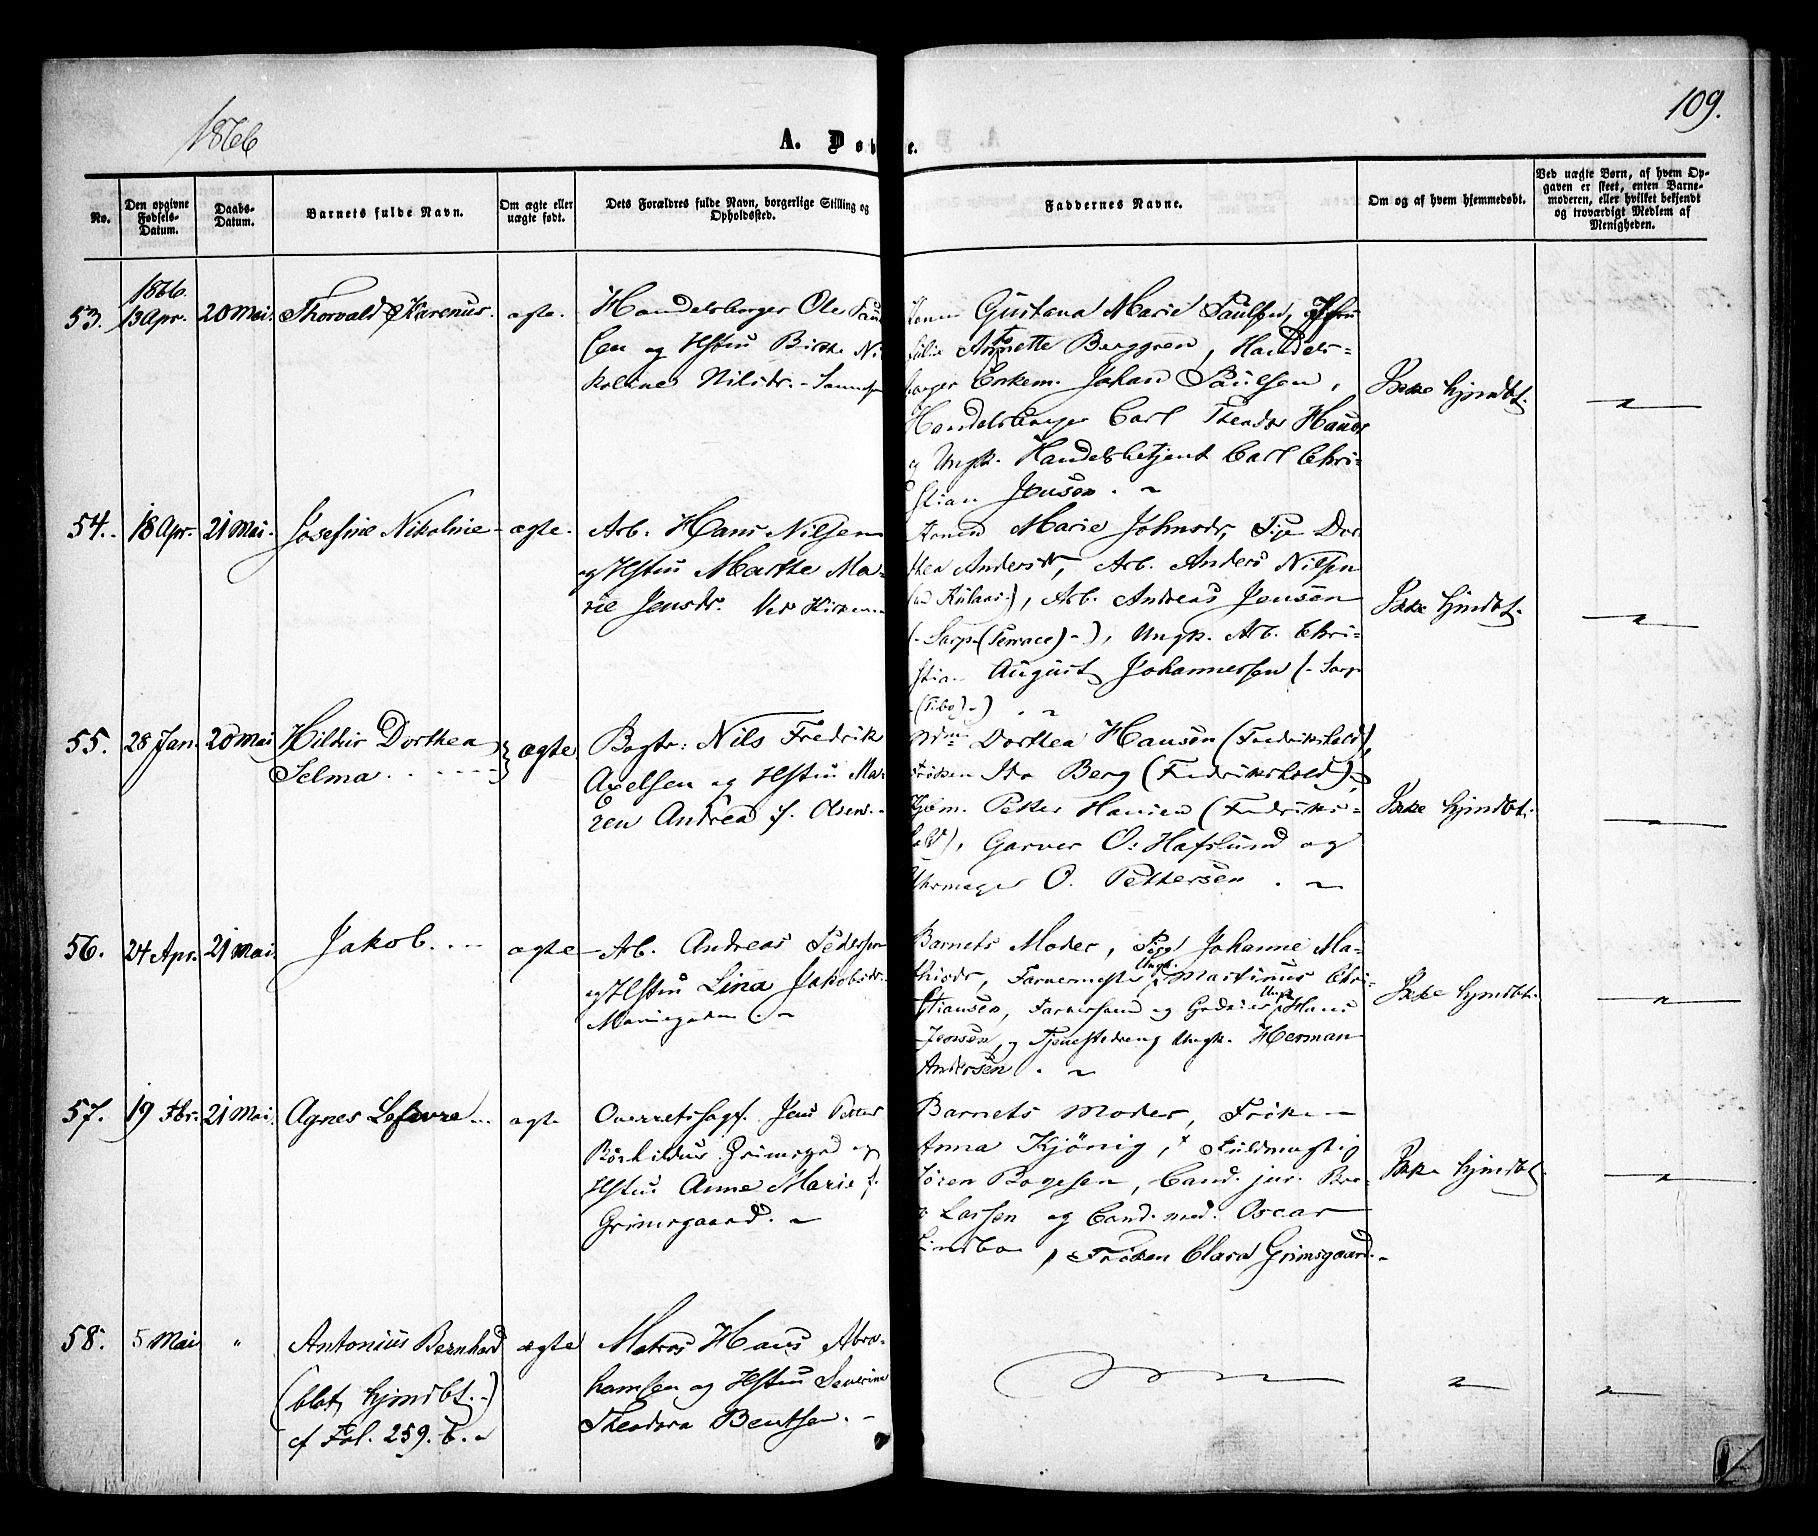 1866
109.
A. Døbte.
No.
Den opgivne Fødsels-Datum.
Daabs-Datum.
Barnets fulde Navn.
Om ægte eller uægte født.
Dets Forældres fulde Navn, borgerlige Stilling og Opholdssted.
Faddernes Navne.
Om og af hvem hjemmedøbt.
Ved uægte Børn, af hvem Opgaven er skeet, enten Barnemoderen, eller hvilket bekjendt og troværdigt Medlem af Menigheden.
53.
1866.
13 Apr.
20 Mai.
Thorvald Karenus.
ægte.
Handelsborger Ole Paul
sen og Hstru Birthe Ni
koline Nilsdr.
Konen Gustava Marie Paulsen,
Annette Berggren, Handels-
borger Enkem. Johan Paulsen,
Handelsborger Carl Theodor
og Ungk. Handelsbetjent Carl Chri-
stian Jensen.
Ikke hjmdbt.
54.
18 Apr.
21 Mai.
Josefine Nikoline
ægte.
Arb. Hans Nilsen
og Hstru Marthe Ma-
rie Jensdr. Ved Kirken
Konen Marie Johnsdr, Pige Dor-
thea Andersdr, Arb. Anders Nilsen
Arb. Andreas Jensen
(-Sarp (Terrace)-), Ungk. Arb. Chri-
stian August Johannessen (-Sarp
Ikke hjmdbt.
55.
28 Jan.
20 Mai
Hildur Dorthea
Selma
ægte
Bagtr: Nils Fredrik
Axelsen og Hstru Ma-
ren Andrea f. Olsen.
Dorthea Hansen (Fredrikshald),
Frøken Ida Berg (Fredrikshald),
Petter Hansen (Fredriks-
hald), Garver O. Hafslund og
Uhrmager O. Pettersen.
Ikke hjmdbt.
56.
24 Apr.
21 Mai.
Jakob.
ægte
Arb. Andreas Pedersen
og Hstru Lina Jakobsdr.
Barnets Moder, Pige Johanne Ma-
thisdr, Ungk. Martinus Chri-
stiansen, Ungk. Hans
Jensen, og Tjenestedreng Ungk. Herman
Andersen.
Ikke hjmdbt.
57.
19 Fbr.
21 Mai.
Agnes Lefevre
ægte
Overretssagf. Jens Petter
Grimsgaard og
Hstru Anne Marie f.
Grimsgaard.
Barnets Moder, Frøken
Anna Kjönig, Fuldmægtig
Søren Bagesen, Cand. jur.
Larsen og Cand. med. Oscar
Frøken Clara Grimsgaard.
Ikke hjmdbt.
58.
5 Mai
"
Antonius Bernhard
(blot hjmdbt.-)
cf Fol. 259. b.
ægte
Matros Hans Abra-
hamsen og Hstru Severine
Theodora Bentsen.